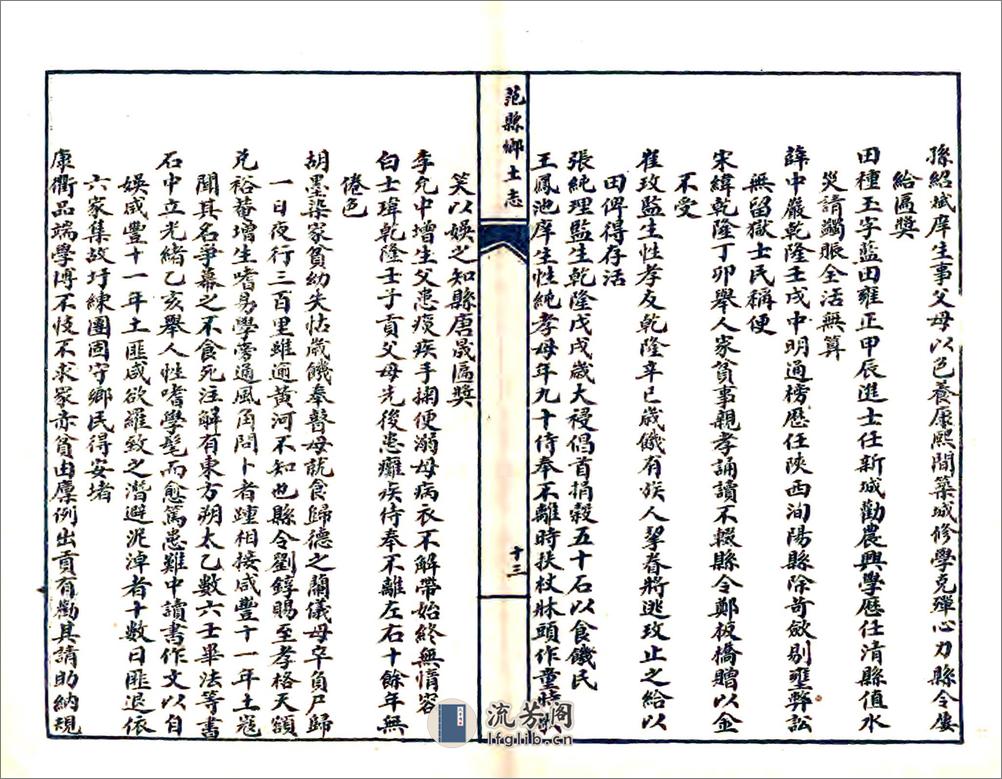 孫紹斌庠生事父母以色養康熙間築城修學克殫心力縣令屢
給匾獎
田種玉字藍田雍正甲辰進士任新城勸農興學歷任清縣值水
災請蠲賑全活無算
薛中嚴乾隆壬戌中明通榜歷任陝西洵陽縣除苛歛剔壅弊訟
無留獄士民稱便
宋緯乾隆丁卯舉人家貧事親孝誦讀不輟縣令鄭板橋贈以金
不受
崔玫監生性孝友乾隆辛巳歲饑有族人挈眷將逃玫止之給以
田俾得存活
張純理監生乾隆戊戌歲大祲倡首捐穀五十石以食饑民
王鳳池庠生性純孝母年九十侍奉不離時扶杖牀頭作童
范縣鄉土志
十三
笑以娛之知縣唐晟匾獎
李允中增生父患痰疾手掬便溺母病衣不解帶始終無惰容
白士瑋乾隆壬子貢父母先後患癱疾侍奉不離左右十餘年無
倦色
胡墨染家貧幼失怙歲饑奉瞽母就食歸德之蘭儀母卒負尸歸
一日夜行三百里雖逾黃河不知也縣令劉錞賜至孝格天額
兆裕菴增生嗜易學旁通風角問卜者踵相接咸豐十一年土寇
聞其名爭幕之不食死注解有東方朔太乙數六壬畢法等書
石中立光緒乙亥舉人性嗜學髦而愈篤患難中讀書作文以自
娛咸豐十一年土匪咸欲羅致之潛避泥淖者十數日匪退依
六家集故圩練團固守鄉民得安堵
康衢品端學博不忮不求家赤貧由廩例出貢有勸其請助納規
流芳阁
lfglib.cn